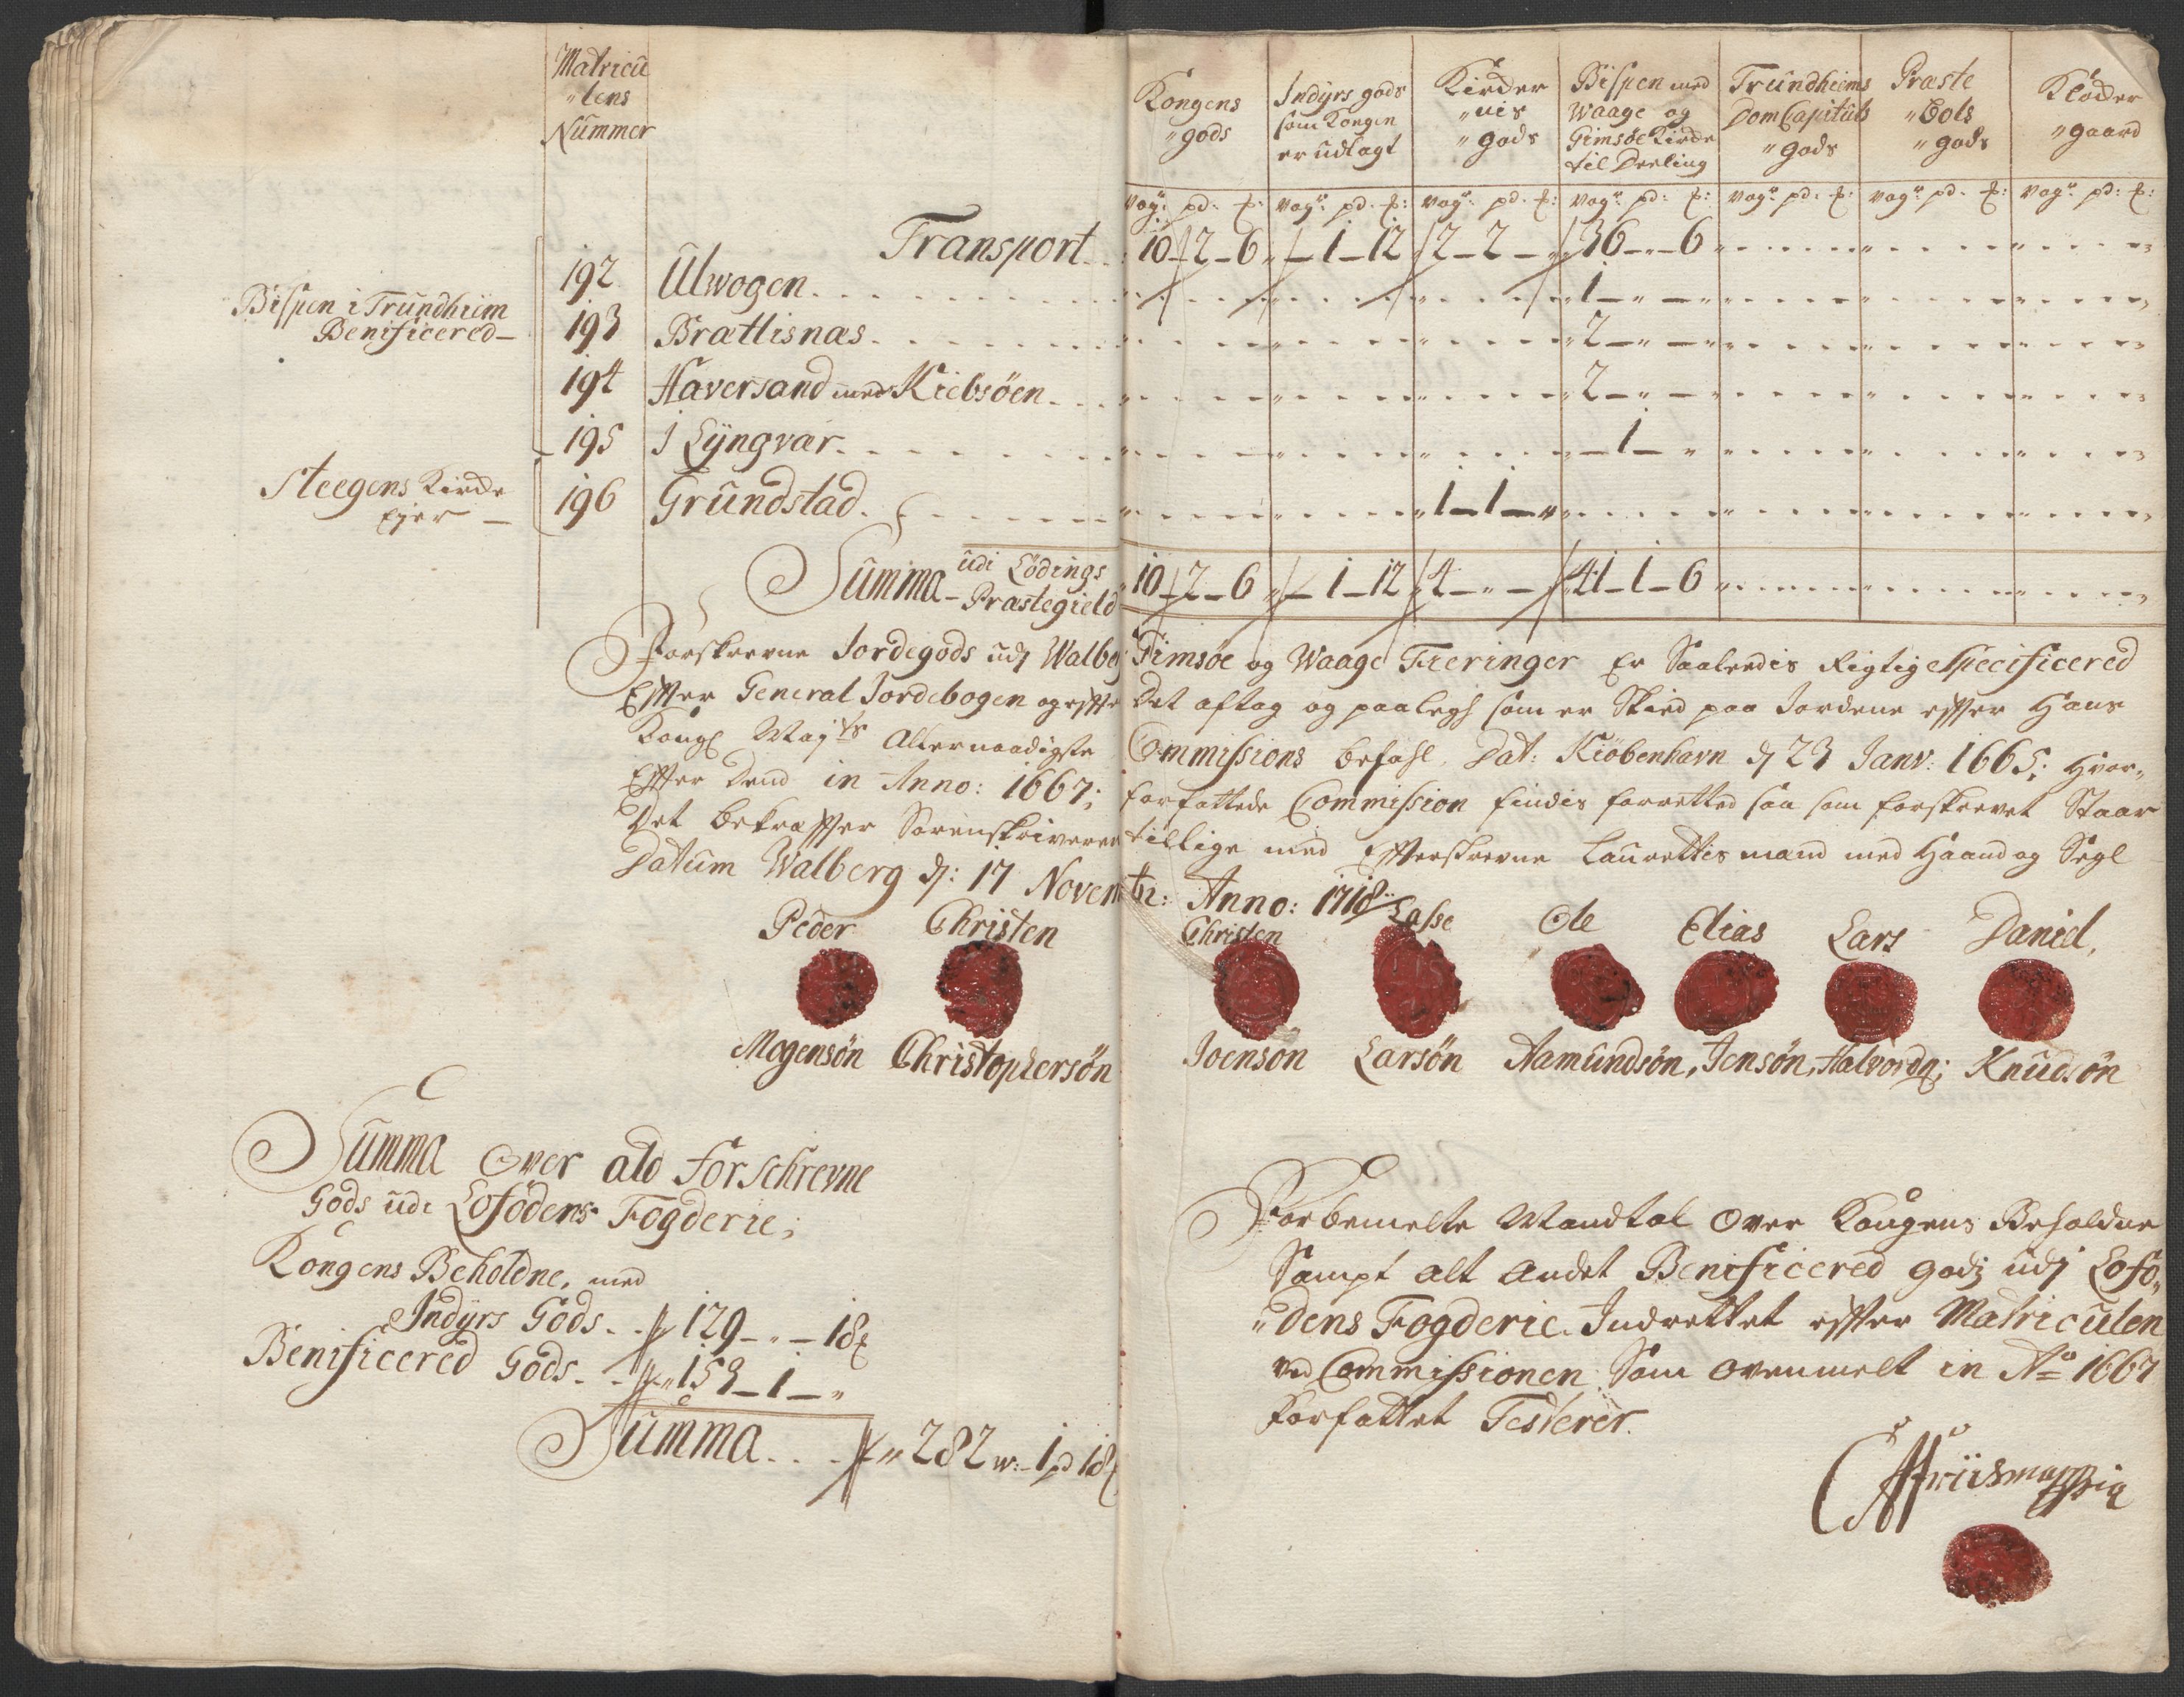 Matricu
"lens
Nummer
Kongens
"gods
Indÿrs gods
som Kongen
er udlagt
Kircker
"nis
"gods
Bispen med
Waage og
Gimsøe Kircke
til Deeling
Trundheims
Dom Capituls
"gods
Præste
"Bols
"gods
Klocker
"gaard
vog: pd: ℔: vog: pd: ℔: vog: pd: ℔: vog: pd: ℔: vog: pd: ℔: vog: pd: ℔: vog: pd: ℔:
Transport.. 10-2-6 "-1-12 2-2-" 36-"-6
Bispen i Trundhiem
Benificered-
192 Ulwogen. 1-"-"
193 Brættisnæs. 2-"-"
194 Haversand med Kiebsöen. 2-"-"
195 I Lÿngvær. -1-"
Steegens Kircke
Ejer -
196 Grundstad. 1-1-"
Summa- udi Lödings
Præstegield 10-2-6 "-1-12 4-"- 41-1-6
Forskrevne Jordegods udj Walberg Gimsøe og Waage Fieringer Er Saaledis Rigtig Specificered
Efter General Jordebogen og efter Det aftag og paalegh som er Skied paa Jordene efter Hans
Kongl Mayts Allernaadigste Commissions befahl, Dat: Kiöbenhavn dj 23 Janv: 1665; hvor"
Efter Dend in Anno: 1667; forfattede Commission findis forretted saa som forskrevet Staar
Det bekræfter Sorenskriveren tillige med Efterskrevne Laurettis mænd med Haand og Segl
Datum Walberg dj: 17 Novembr: Anno: 1718.
Peder Christen Christen Lasse Ole Elias Lars Daniel,
Mogensön Christophersön Joenson Larsön Aamundsön, Jensön, Halvordn; Knudsön
Summa Over ald forschrevne
Gods udi Lofödens Fogderie;
Kongens Beholdne, med
Indÿrs Gods.. 129-"-18℔
Benificered Gods.. "153-1-"
Summa... "282 w:-1 pd 18℔
Forbemelte Mandtal Over Kongens Beholdne
Sampt alt Andet Benificered godz udj Lofö"
"dens Fogderie Indrettet efter Matriculen
ved Commissionen Som ovenmelt in Ao 1667
Forfattet Testerer.